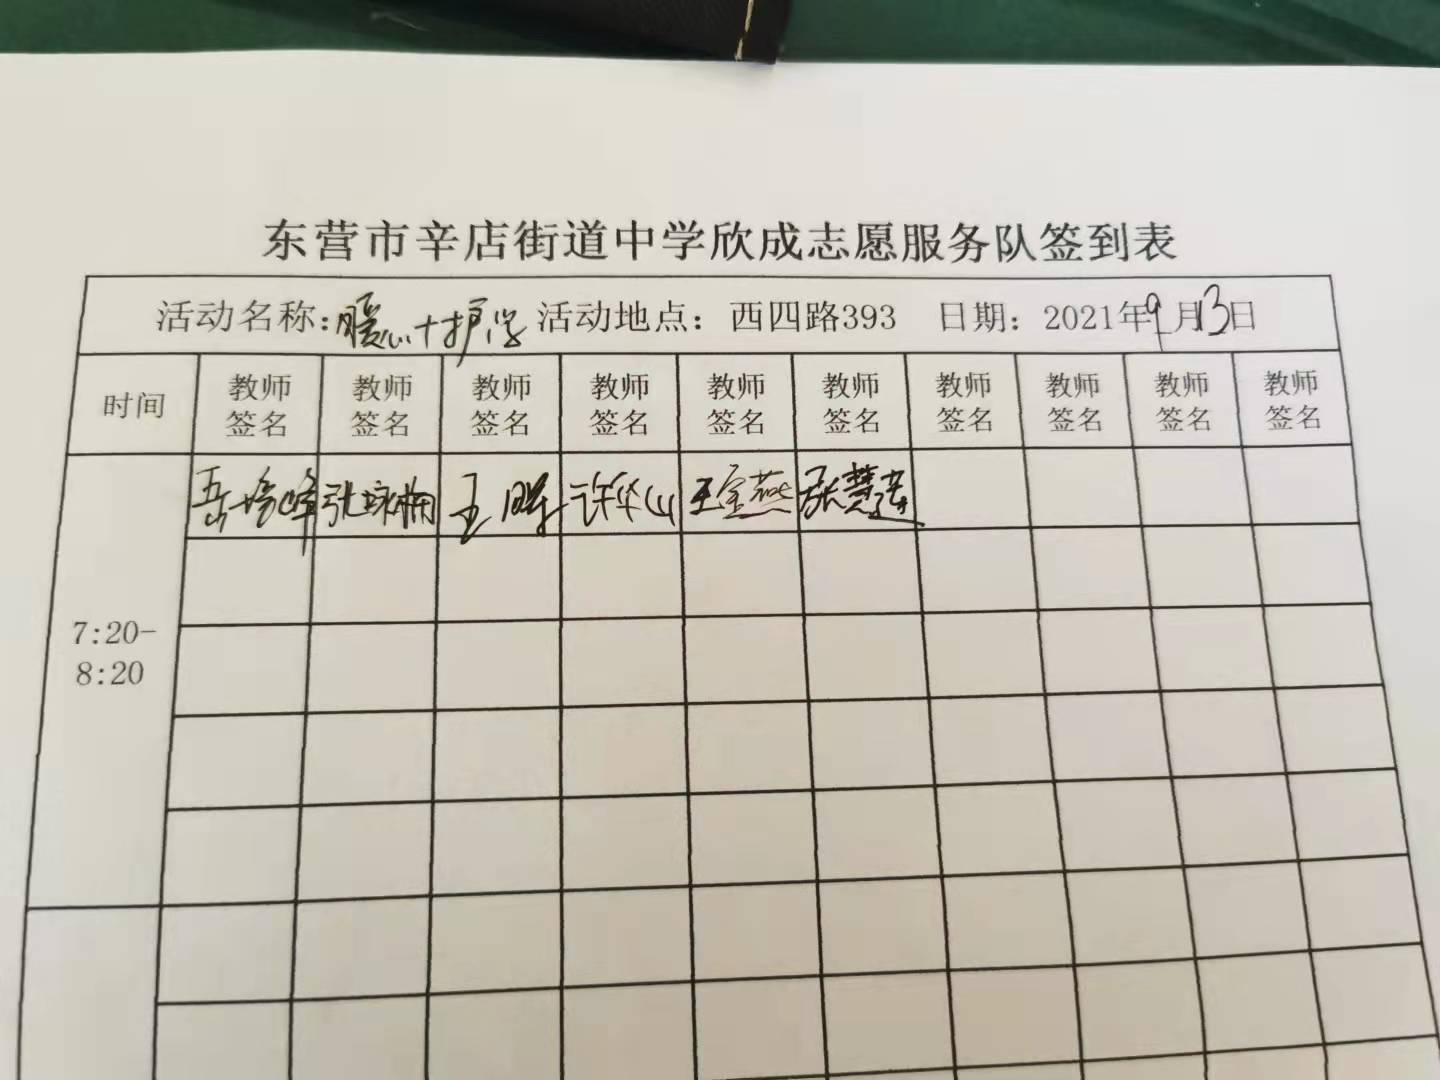 东营市辛店街道中学欣成志愿服务队签到表
活动名称:暖心护学 活动地点: 西四路393 日期: 2021年9月13日
时间 教师签名 教师签名 教师签名 教师签名 教师签名 教师签名 教师签名 教师签名 教师签名 教师签名
岳培峰 张咏梅 王晖 许华山 王宝燕 张慧莲
7:20-
8:20